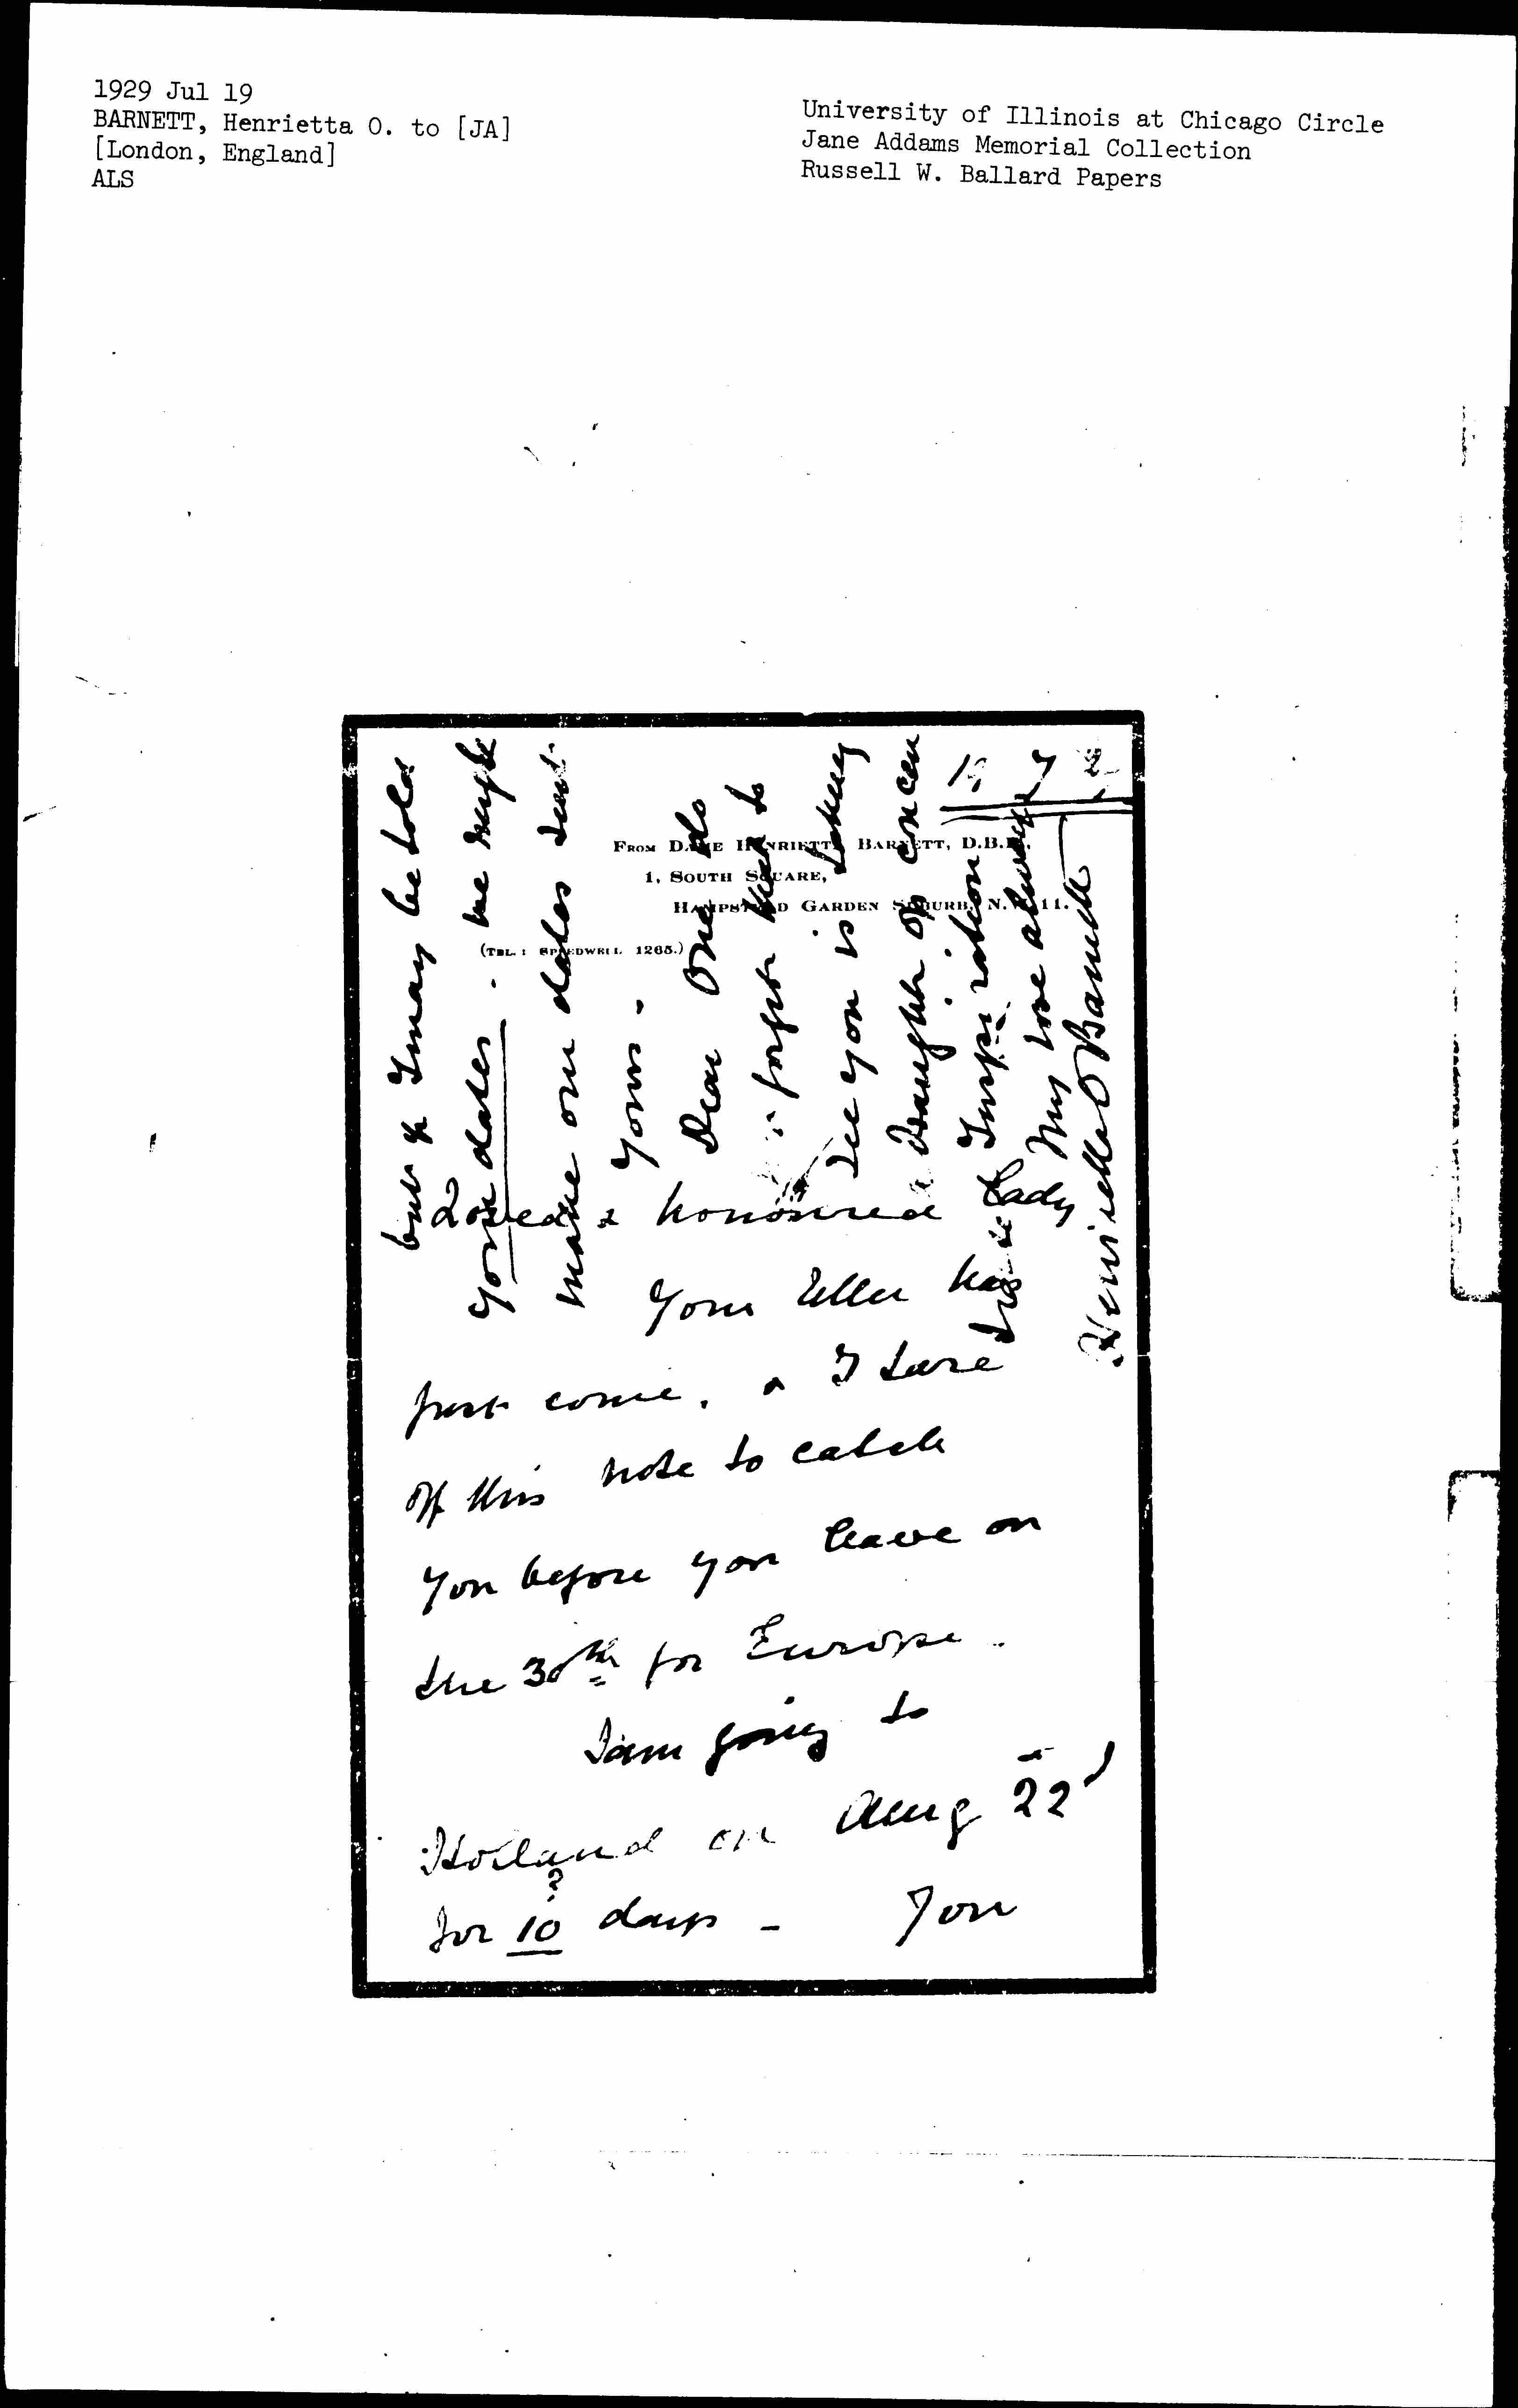 1929 Jul 19
BARNETT, Henrietta O. to [JA]
[London, England]
ALS
University of Illinois at Chicago Circle
Jane Addams Memorial Collection
Russell W. Ballard Papers
FROM DAME HENRIETTA BARNETT, D.B.E.
1, SOUTH SQUARE,
HAMPSTEAD GARDEN SUBURB, N.W. 11.
(TEL.: SPEEDWELL 1265.)
Loved & honoured Lady
Your letter has
just come, & I tare
off this note to catch
you before you leave on
the 30th for Europe.
I am going to
Holland on Aug 22d
for 10? days - You
but if I may be told
your dates. we might
make our dates suit
yours -
Dear One do
forget that to
see you is taking
a draught of
Inspiration
My love always
Henrietta O Barnett